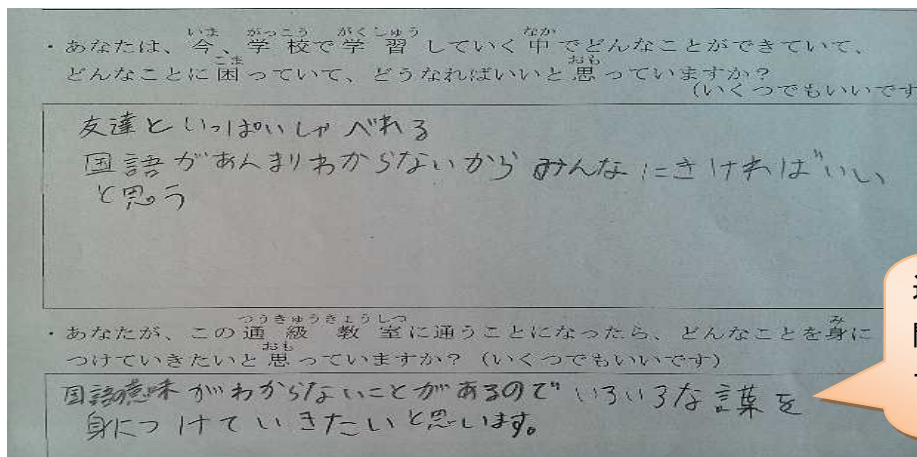 ・あなたは、今、学校で学習していく中でどんなことができていて、
どんなことに困っていて、どうなればいいと思っていますか?
(いくつでもいいです
友達といっぱいしゃべれる
国語があんまりわからないから みんなにきければいい
と思う
・あなたが、この通級教室に通うことになったら、どんなことを身に
つけていきたいと思っていますか?(いくつでもいいです)
国語意味がわからないことがあるので いろいろな言葉を
身につけていきたいと思います。